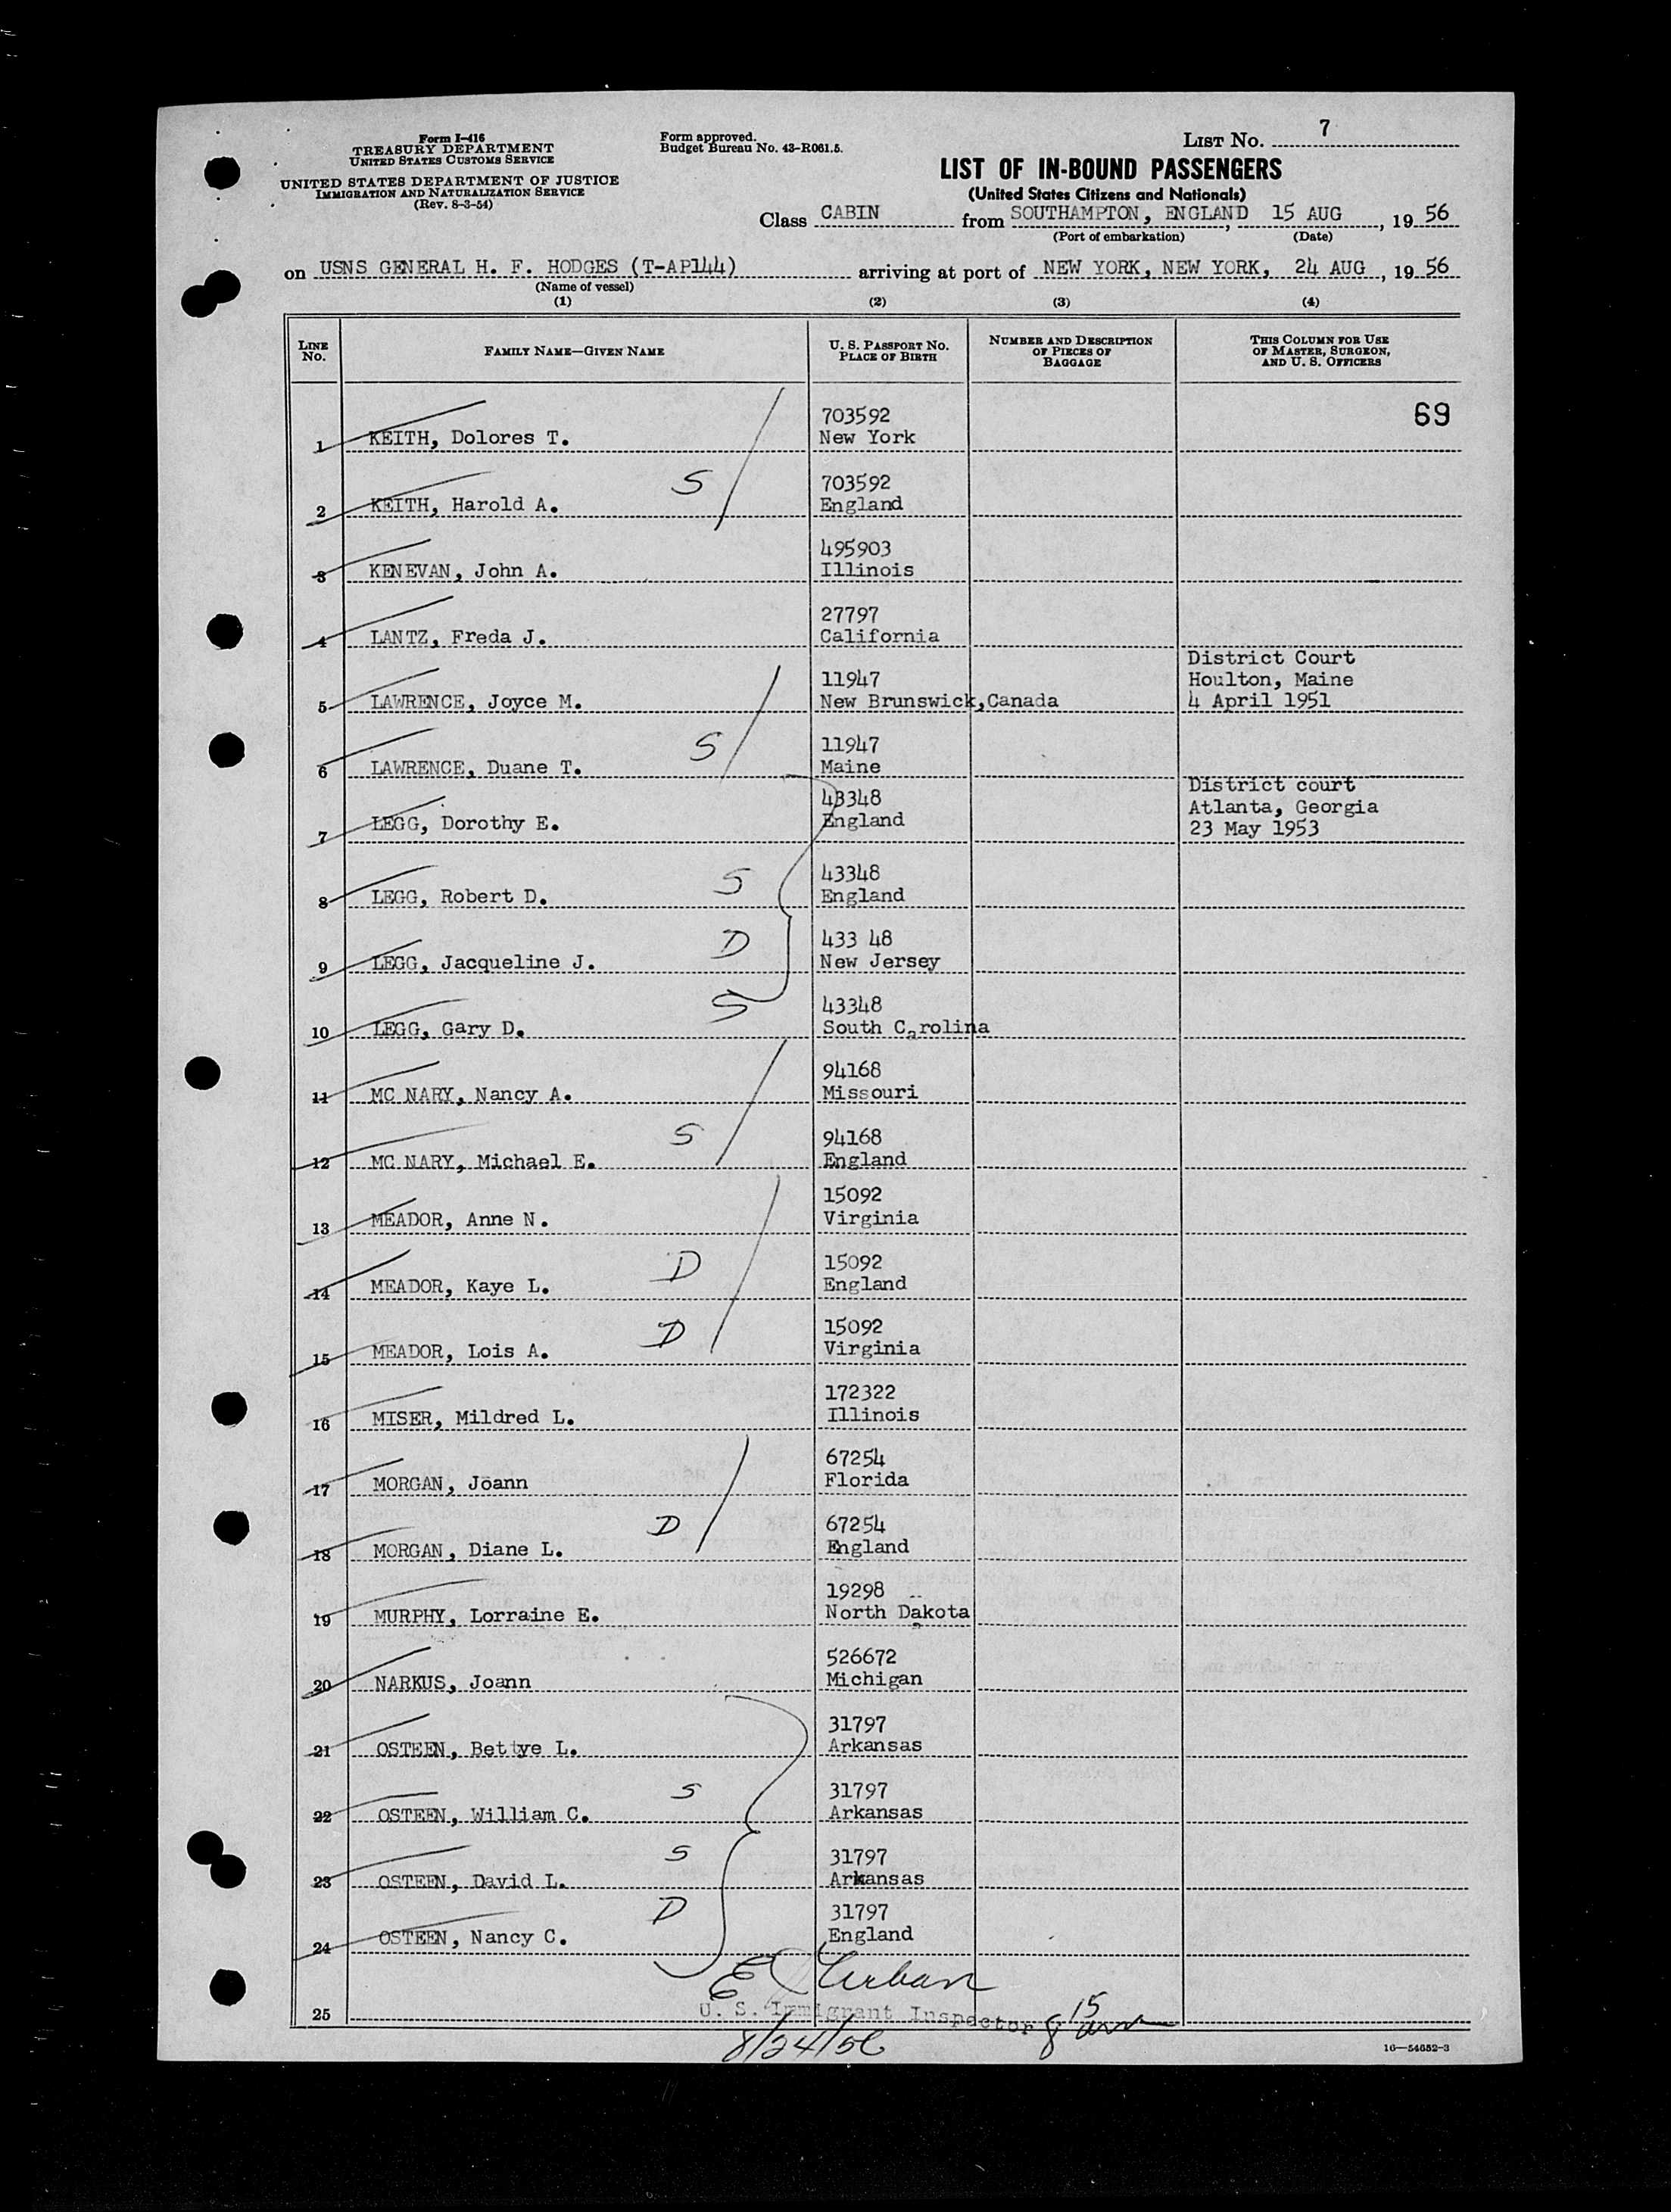 Form I-416
TREASURY DEPARTMENT
UNITED STATES CUSTOMS SERVICE
UNITED STATES DEPARTMENT OF JUSTICE
IMMIGRATION AND NATURALIZATION SERVICE
(Rev. 8-3-54)
Form approved.
Budget Bureau No. 43-R061.5.
LIST NO. 7
LIST OF IN-BOUND PASSENGERS
(United States Citizens and Nationals)
Class CABIN from SOUTHAMPTON, ENGLAND, 15 AUG, 19 56
(Port of embarkation) (Date)
on USNS GENERAL H. F. HODGES (T-AP144) arriving at port of NEW YORK, NEW YORK, 24 AUG, 19 56
(Name of vessel)
(1) (2) (3) (4)
LINE NO. FAMILY NAME—GIVEN NAME U. S. PASSPORT NO. PLACE OF BIRTH NUMBER AND DESCRIPTION OF PIECES OF BAGGAGE THIS COLUMN FOR USE OF MASTER, SURGEON, AND U. S. OFFICERS
703592 69
1 KEITH, Dolores T. New York
S 703592
2 KEITH, Harold A. England
495903
3 KENEVAN, John A. Illinois
27797
4 LANTZ, Freda J. California
District Court
11947 Houlton, Maine
5 LAWRENCE, Joyce M. New Brunswick, Canada 4 April 1951
S 11947
6 LAWRENCE, Duane T. Maine
District court
43348 Atlanta, Georgia
7 LEGG, Dorothy E. England 23 May 1953
S 43348
8 LEGG, Robert D. England
D 433 48
9 LEGG, Jacqueline J. New Jersey
S 43348
10 LEGG, Gary D. South Carolina
94168
11 MC NARY, Nancy A. Missouri
S 94168
12 MC NARY, Michael E. England
15092
13 MEADOR, Anne N. Virginia
D 15092
14 MEADOR, Kaye L. England
D 15092
15 MEADOR, Lois A. Virginia
172322
16 MISER, Mildred L. Illinois
67254
17 MORGAN, Joann Florida
D 67254
18 MORGAN, Diane L. England
19298
19 MURPHY, Lorraine E. North Dakota
526672
20 NARKUS, Joann Michigan
31797
21 OSTEEN, Bettye L. Arkansas
S 31797
22 OSTEEN, William C. Arkansas
S 31797
23 OSTEEN, David L. Arkansas
D 31797
24 OSTEEN, Nancy C. England
E Urban
25 U. S. Immigrant Inspector
15
8/24/56
16—54652-3